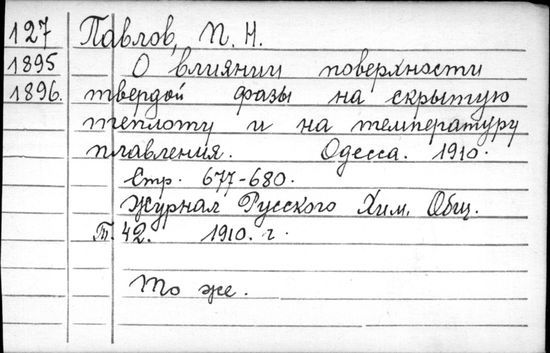 127 Павлов, П. Н.
1895 О влиянии поверхности
1896. твердой фазы на скрытую
теплоту и на температуру
плавления. Одесса. 1910.
Стр. 677-680.
Журнал Русского Хим. Общ.
Т. 42. 1910. г.
То же.